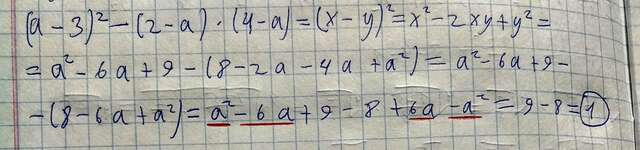 (a-3)² - (2-a) · (4-a) = (x-y)² = x² - 2xy + y² =
= a² - 6a + 9 - (8 - 2a - 4a + a²) = a² - 6a + 9 -
- (8 - 6a + a²) = a² - 6a + 9 - 8 + 6a - a² = 9 - 8 = 1